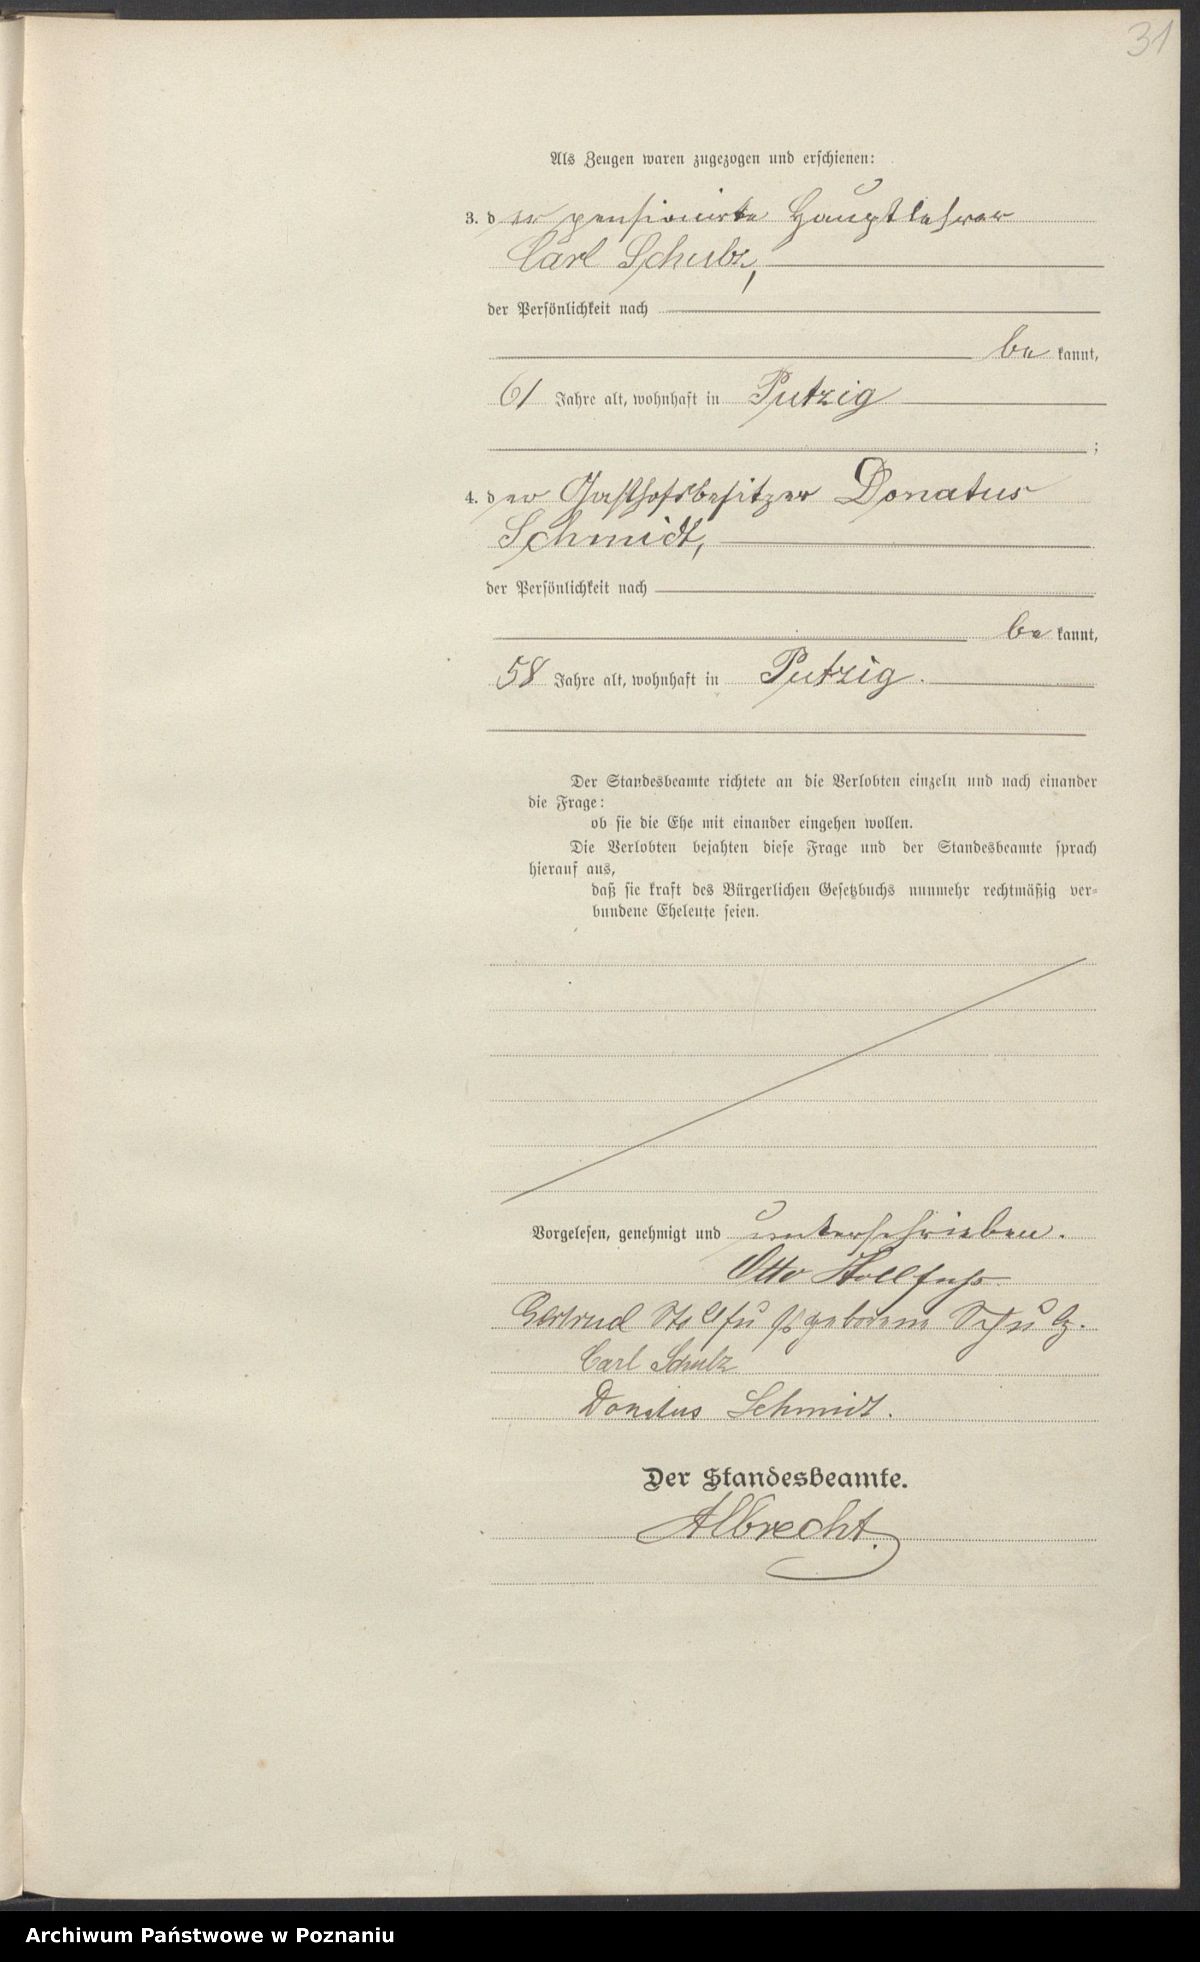 31
Als Zeugen waren zugezogen und erschienen:
3. der pensionirte Hauptlehrer
Carl Schulz,
der Persönlichkeit nach
be kannt,
61 Jahre alt, wohnhaft in Putzig
;
4. der Gasthofsbesitzer Donatus
Schmidt,
der Persönlichkeit nach
be kannt,
58 Jahre alt, wohnhaft in Putzig.
Der Standesbeamte richtete an die Verlobten einzeln und nach einander
die Frage:
ob sie die Ehe mit einander eingehen wollen.
Die Verlobten bejahten diese Frage und der Standesbeamte sprach
hierauf aus,
daß sie kraft des Bürgerlichen Gesetzbuchs nunmehr rechtmäßig ver-
bundene Eheleute seien.
Vorgelesen, genehmigt und unterschrieben.
Otto
Gertrud geborene Schulz.
Carl Schulz
Donatus Schmidt.
Der Standesbeamte.
Albrecht.
Archiwum Państwowe w Poznaniu